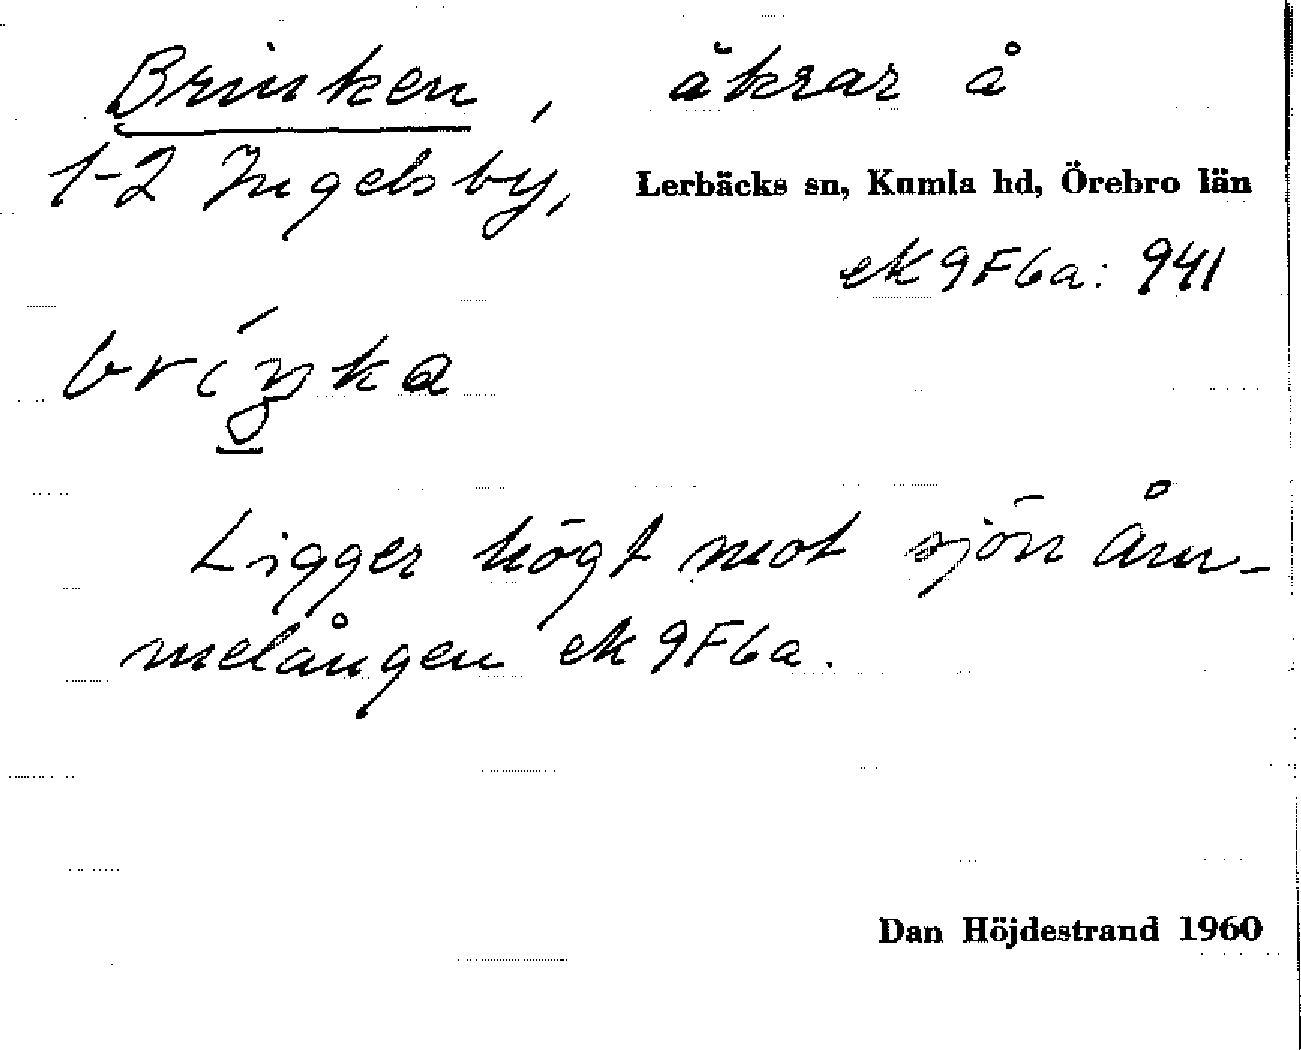 Brinken, åkrar å
1-2 Ingelsby, Lerbäcks sn, Kumla hd, Örebro län
ek 9F6a: 941
bríŋka
Ligger högt mot sjön Åm-
melången ek 9F6a.
Dan Höjdestrand 1960